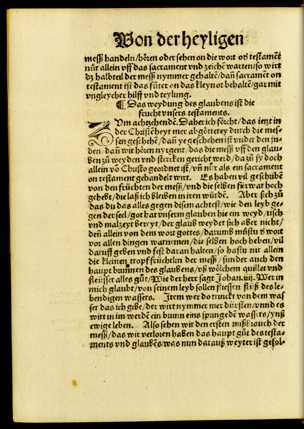 Von der heyligen
mess handeln/ hören oder sehen on die wort on testamēt
nůr allein vff das sacrament vnd zeichē warten/so wirt
dz halbteil der mess nymmer gehaltē/ dañ sacramēt on
testament ist das fůter on das kleynot behaltē/ gar mit
vngleycher hülff vnd teylung.
¶ Das weydung des glaubens ist die
frucht vnsers testaments.
Vm achtzehendē. Daher ich föcht/ das ietzt in
der Christēheyt mer abgötterey durch die mes-
sen geschihē/ dañ ye geschehen ist vnder den ju-
den. dañ wir hören nyrgent das die mess vff den glau-
bē zů weyden vnd stercken gericht werd/ da zů sy doch
allein võ Christo geordnet ist/ vñ nůr als ein sacrament
on testament gehandelt wirt. Es haben vil geschribē
von den früchten der mess/ vnd die selben fürwar hoch
gehebt/ die lass ich bleiben in irem würdē. Aber sich zů
das du das alles gegen disem achtest/ wie den leyb ge-
gen der seel/ got hat vnserm glauben hie ein weyd/ tisch
vnd malzeyt bereyt/ der glaub weydet sich aber nicht/
deñ allein von dem wort gottes/ darumb můstu ð wort
vor allen dingen warnemen/ die selben hoch heben/ vil
daruff geben vnd fest daran halten/ so hastu nit allein
die kleinen tropffrüchtlen der mess/ sunder auch den
haupt brunnen des glaubens/ vss wölchem quillet vnd
fleüsset alles gůt/ Wie der herr sagt Johan. vij. Wer in
mich glaubt/ von seinem leyb sollen fliessen flüss des le-
bendigen wassers. Item wer do trinckt von dem was-
ser das ich gibe/ der wirt nymmer mer dürsten/ vnnd es
wirt in im werdē ein brunn eins springendē wassers/ ynß
ewige leben. Also sehen wir den ersten missbrauch der
mess/ das wir verloren haben das haupt gůt des testa-
ments vnd glaubēs was nun darauß weyter ist gefol-